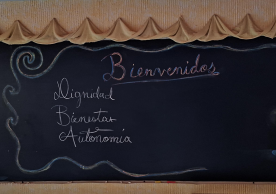 Bienvenidos
Dignidad
Bienestar
Autonomía